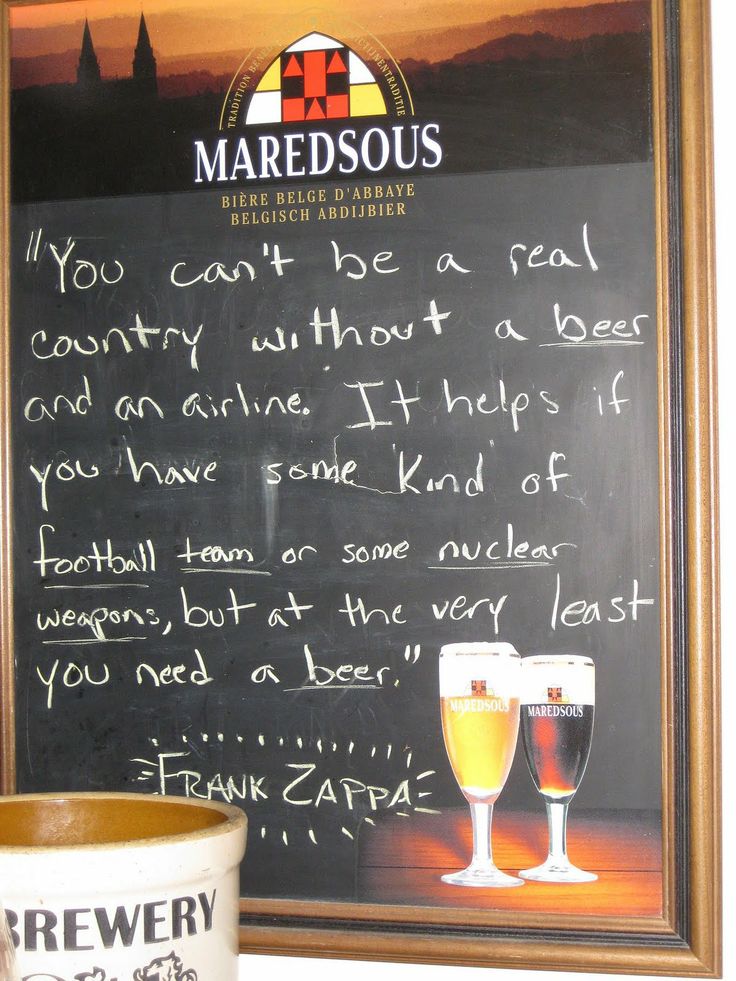 TRADITION BÉNÉ
CTIJNENTRADITIE
MAREDSOUS
BIÈRE BELGE D'ABBAYE
BELGISCH ABDIJBIER
"You can't be a real
country without a beer
and an airline. It helps if
you have some kind of
football team or some nuclear
weapons, but at the very least
you need a beer."
FRANK ZAPPA
MAREDSOUS
MAREDSOUS
BREWERY